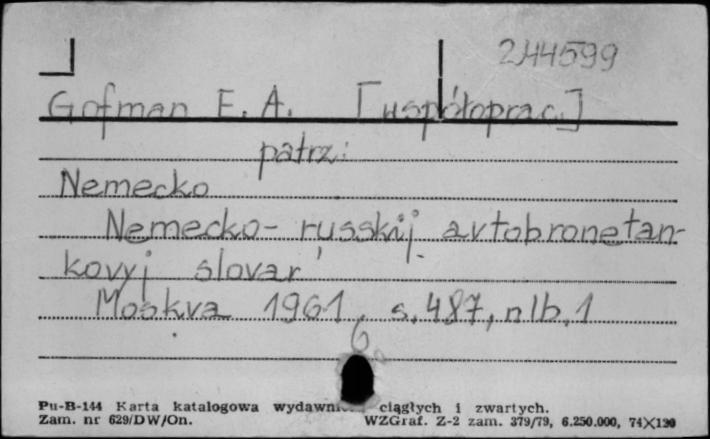 244599
Gofman E. A. [współoprac.]
patrz:
Nemecko
Nemecko-russkij avtobronetan-
kovyj slovar'
Moskva 1961, s. 487, nlb. 1
6
Pu-B-144 Karta katalogowa ciągłych i zwartych.
Zam. nr 629/DW/On. WZGraf. Z-2 zam. 379/79, 6.250.000, 74X120